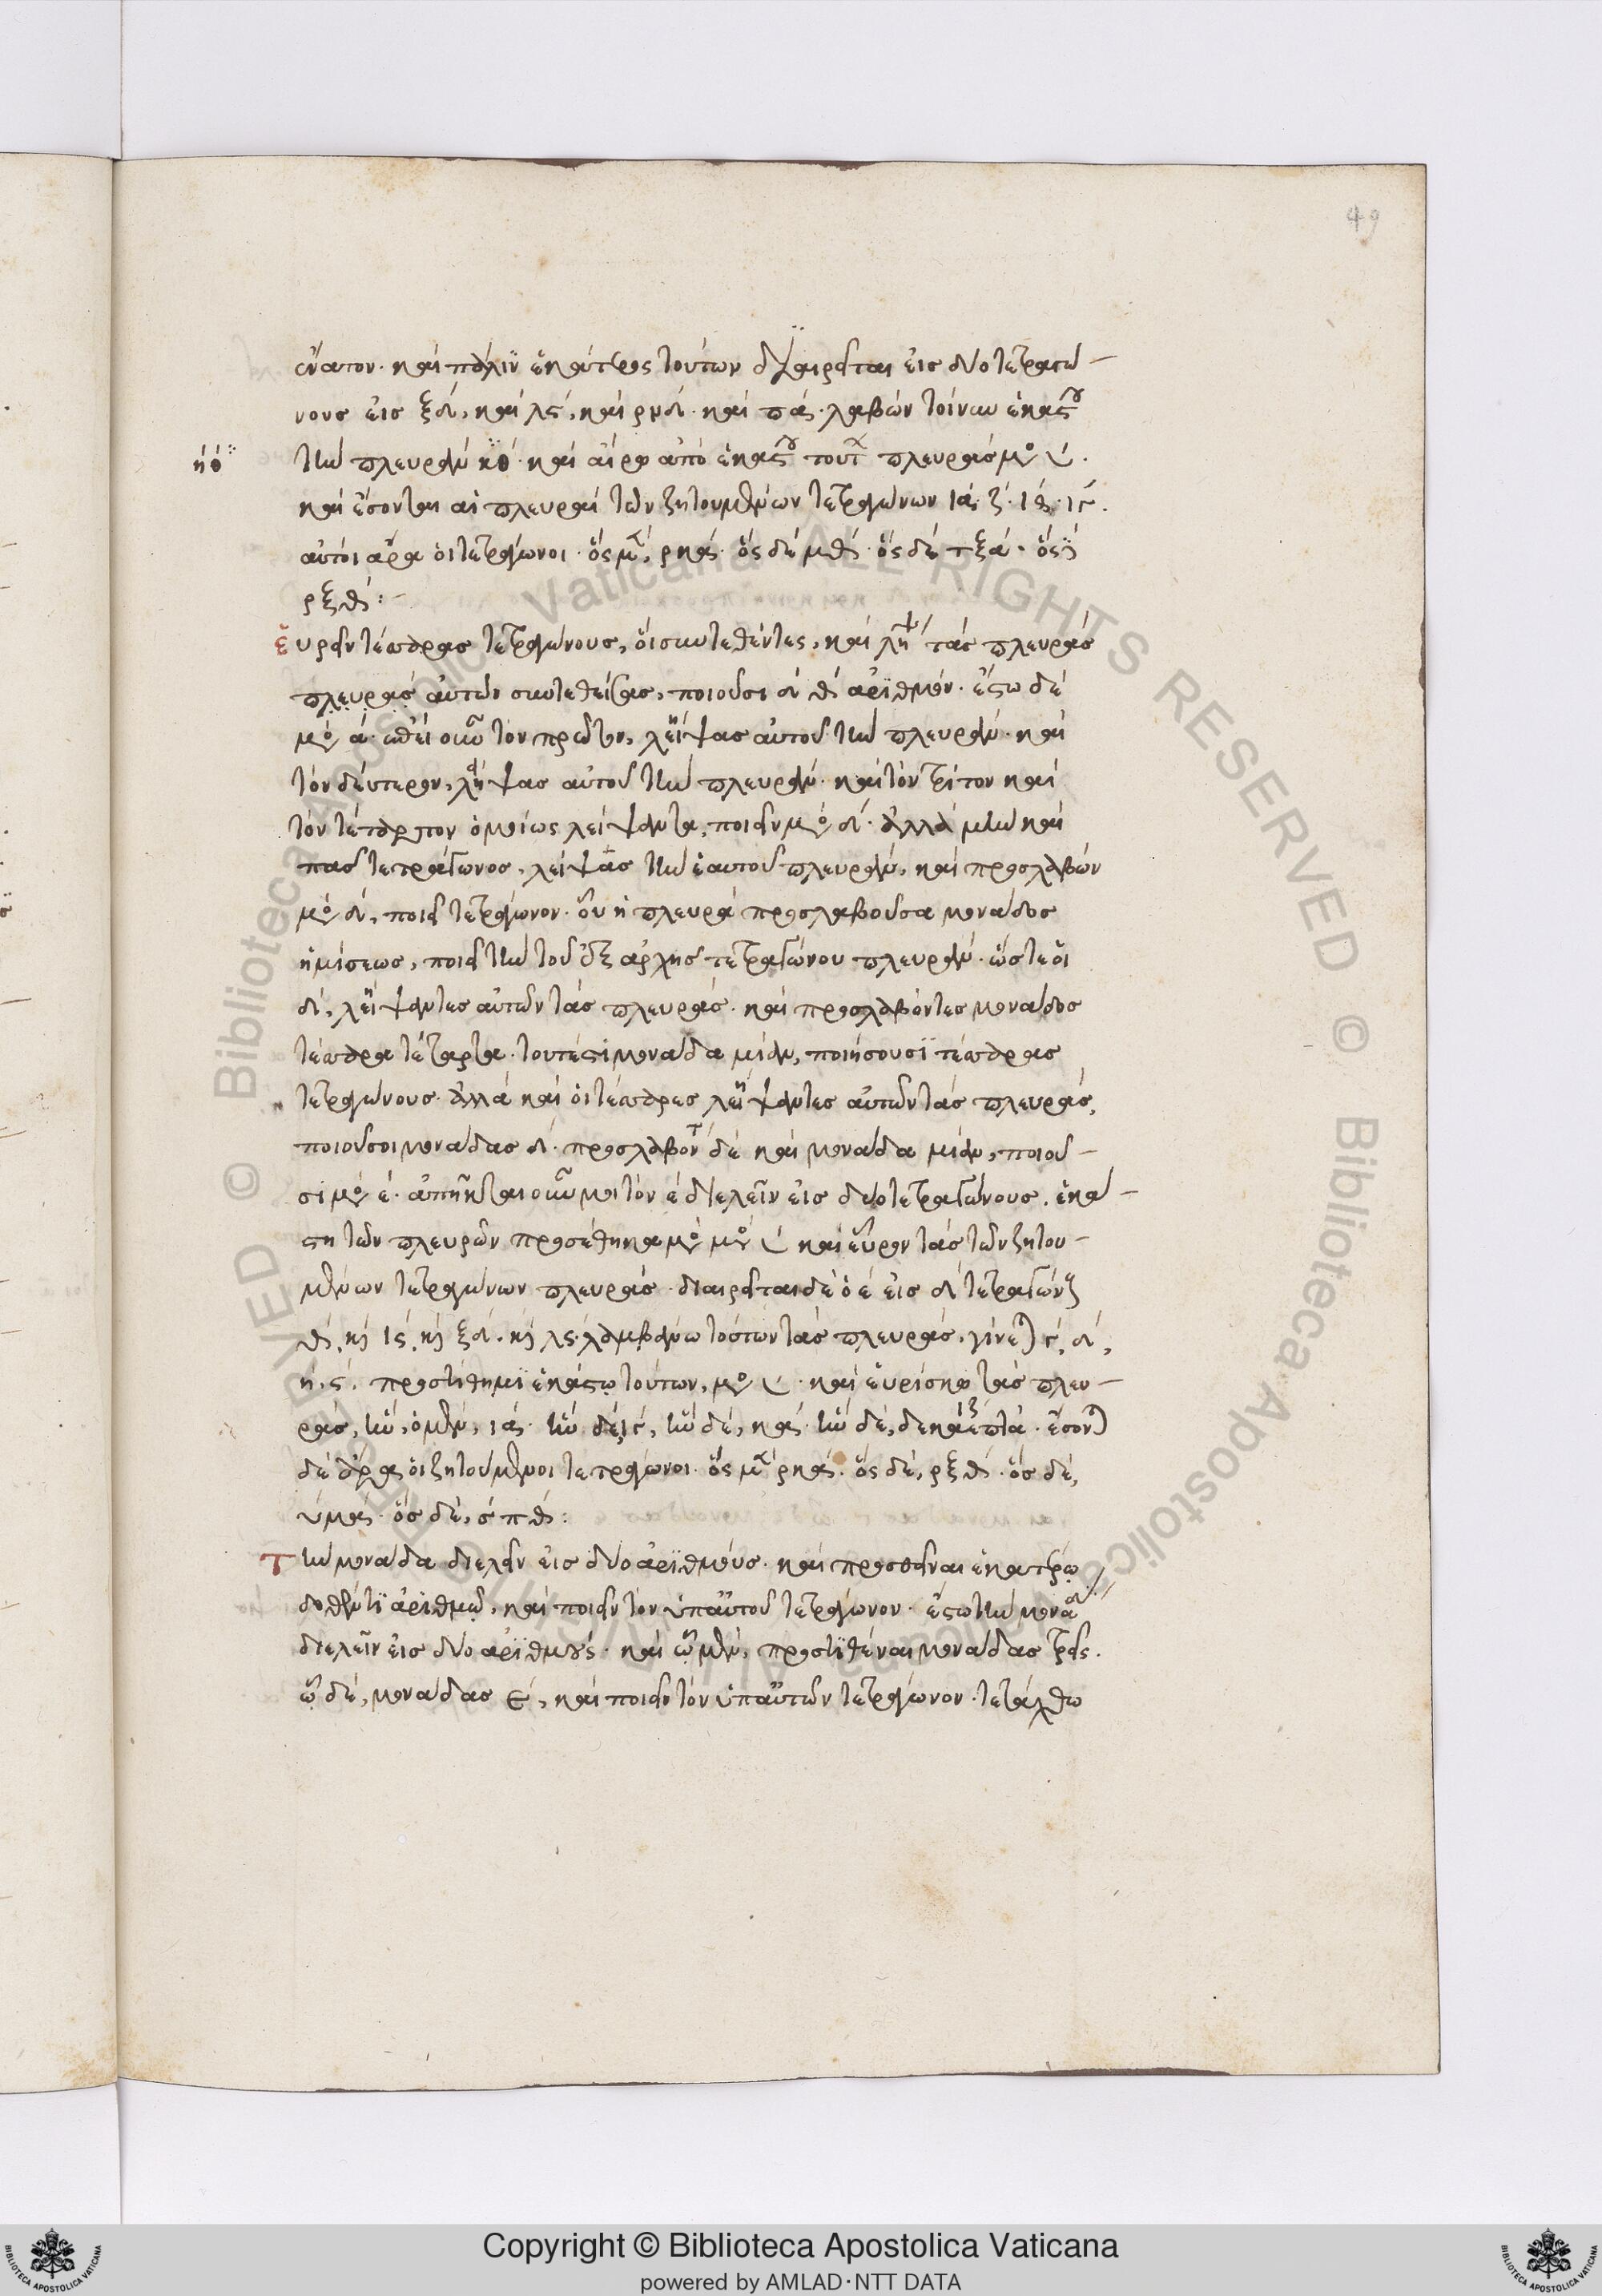 49
ἔνατον· καὶ πάλιν ἑκάτερος τούτων διαιρεῖται εἰς δύο τετραγώ–
νους εἰς ξδ, καὶ λς, καὶ ρμδ· καὶ πα· λαβὼν τοίνυν ἑκάστου
τὴν πλευρὰν · καὶ αἴρω ἀπὸ ἑκάστου τούτων πλευρᾶς μο .
καὶ ἔσονται αἱ πλευραὶ τῶν ζητουμένων τετραγώνων ια· ζ· ιθ· ιγ.
αὐτοὶ ἄρα οἱ τετράγωνοι· ὃς μὲν, ρκα· ὃς δὲ μθ· ὃς δὲ τξα· ὃς δὲ
ρξθ:–
εὑρεῖν τέσσαρας τετραγώνους, οἳ συντεθέντες, καὶ λείψ τὰς πλευρὰς
πλευρὰς αὐτῶν συντεθείσας, ποιοῦσι δθέντα ἀριθμόν· ἔστω δὲ
μο δ· ἐπεὶ οὖν τὸν πρῶτον, λείψας αὐτοῦ τὴν πλευρὰν· καὶ
τὸν δεύτερον, λείψας αὐτοῦ τὴν πλευρὰν· καὶ τὸν τρίτον καὶ
τὸν τέταρτον ὁμοίως λείψαντα, ποιεῖν μο δ· ἀλλὰ μὴν καὶ
πᾶς τετράγωνος, λείψας τὴν ἑαυτοῦ πλευρὰν, καὶ προσλαβὼν
μο δ, ποιεῖ τετράγωνον· οὗ ἡ πλευρὰ προσλαβοῦσα μονάδος
ἡμίσεως, ποιεῖ τὴν τοῦ ἐξ ἀρχῆς τετραγώνου πλευρὰν· ὥστε οἱ
δ, λείψαντες αὐτῶν τὰς πλευρὰς· καὶ προσλαβόντες μονάδος
τέσσαρα τέταρτα· τουτέστι μονάδα μίαν, ποιήσουσι τέσσαρας
τετραγώνους· ἀλλὰ καὶ οἱ τέσσαρες λείψαντες αὐτῶν τὰς πλευρὰς,
ποιοῦσι μονάδας δ· προσλαβόντ δὲ καὶ μονάδα μίαν, ποιοῦ–
σι μο ε· ἀπῆκται οὖν μοι τὸν ε διελεῖν εἰς δύο τετραγώνους. ἑκά–
στη τῶν πλευρῶν προσέθηκα μο μο καὶ εὗρον τὰς τῶν ζητου–
μένων τετραγώνων πλευρὰς· διαιρεῖται δὲ ὁ ε εἰς δ τετραγώνους
θ, καὶ ις, καὶ ξδ· καὶ λς· λαμβάνω τούτων τὰς πλευρὰς, γίνεται γ, δ,
η, ς· προστίθημι ἑκάστῳ τούτων, μο · καὶ εὑρίσκω τὰς πλευ–
ρὰς, τοῦ, ὁ μὲν, ια· τοῦ δὲ, ιγ, τοῦ δὲ, κα· τοῦ δὲ, δεκαεπτὰ · ἔσονται
δὲ ἄρα οἱ ζητούμενοι τετράγωνοι· ὃς μὲν ρκα· ὃς δὲ, ρξθ· ὃς δὲ,
υμα· ὃς δὲ, σπθ:
τὴν μονάδα διελεῖν εἰς δύο ἀριθμούς· καὶ προσθεῖναι ἑκατέρῳ
δοθέντι ἀριθμῷ, καὶ ποιεῖν τὸν ὑπ' αὐτοῦ τετράγωνον· ἔστω τὴν μονάδα
διελεῖν εἰς δύο ἀριθμοὺς· καὶ ᾧ μὲν, προστιθέναι μονάδας τρεῖς·
ᾧ δὲ, μονάδας ε, καὶ ποιεῖν τὸν ὑπ' αὐτῶν τετράγωνον· τετάχθω
Copyright © Biblioteca Apostolica Vaticana
powered by AMLAD·NTT DATA